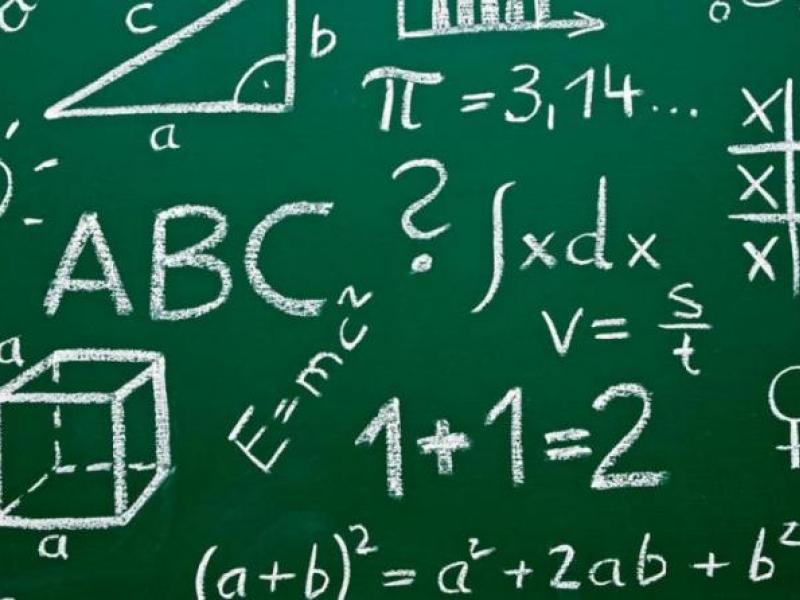 c
b
a
π = 3,14...
x
x
x
ABC
?
∫xdx
v = s/t
E=mc²
a
1+1=2
a
(a+b)² = a² + 2ab + b²